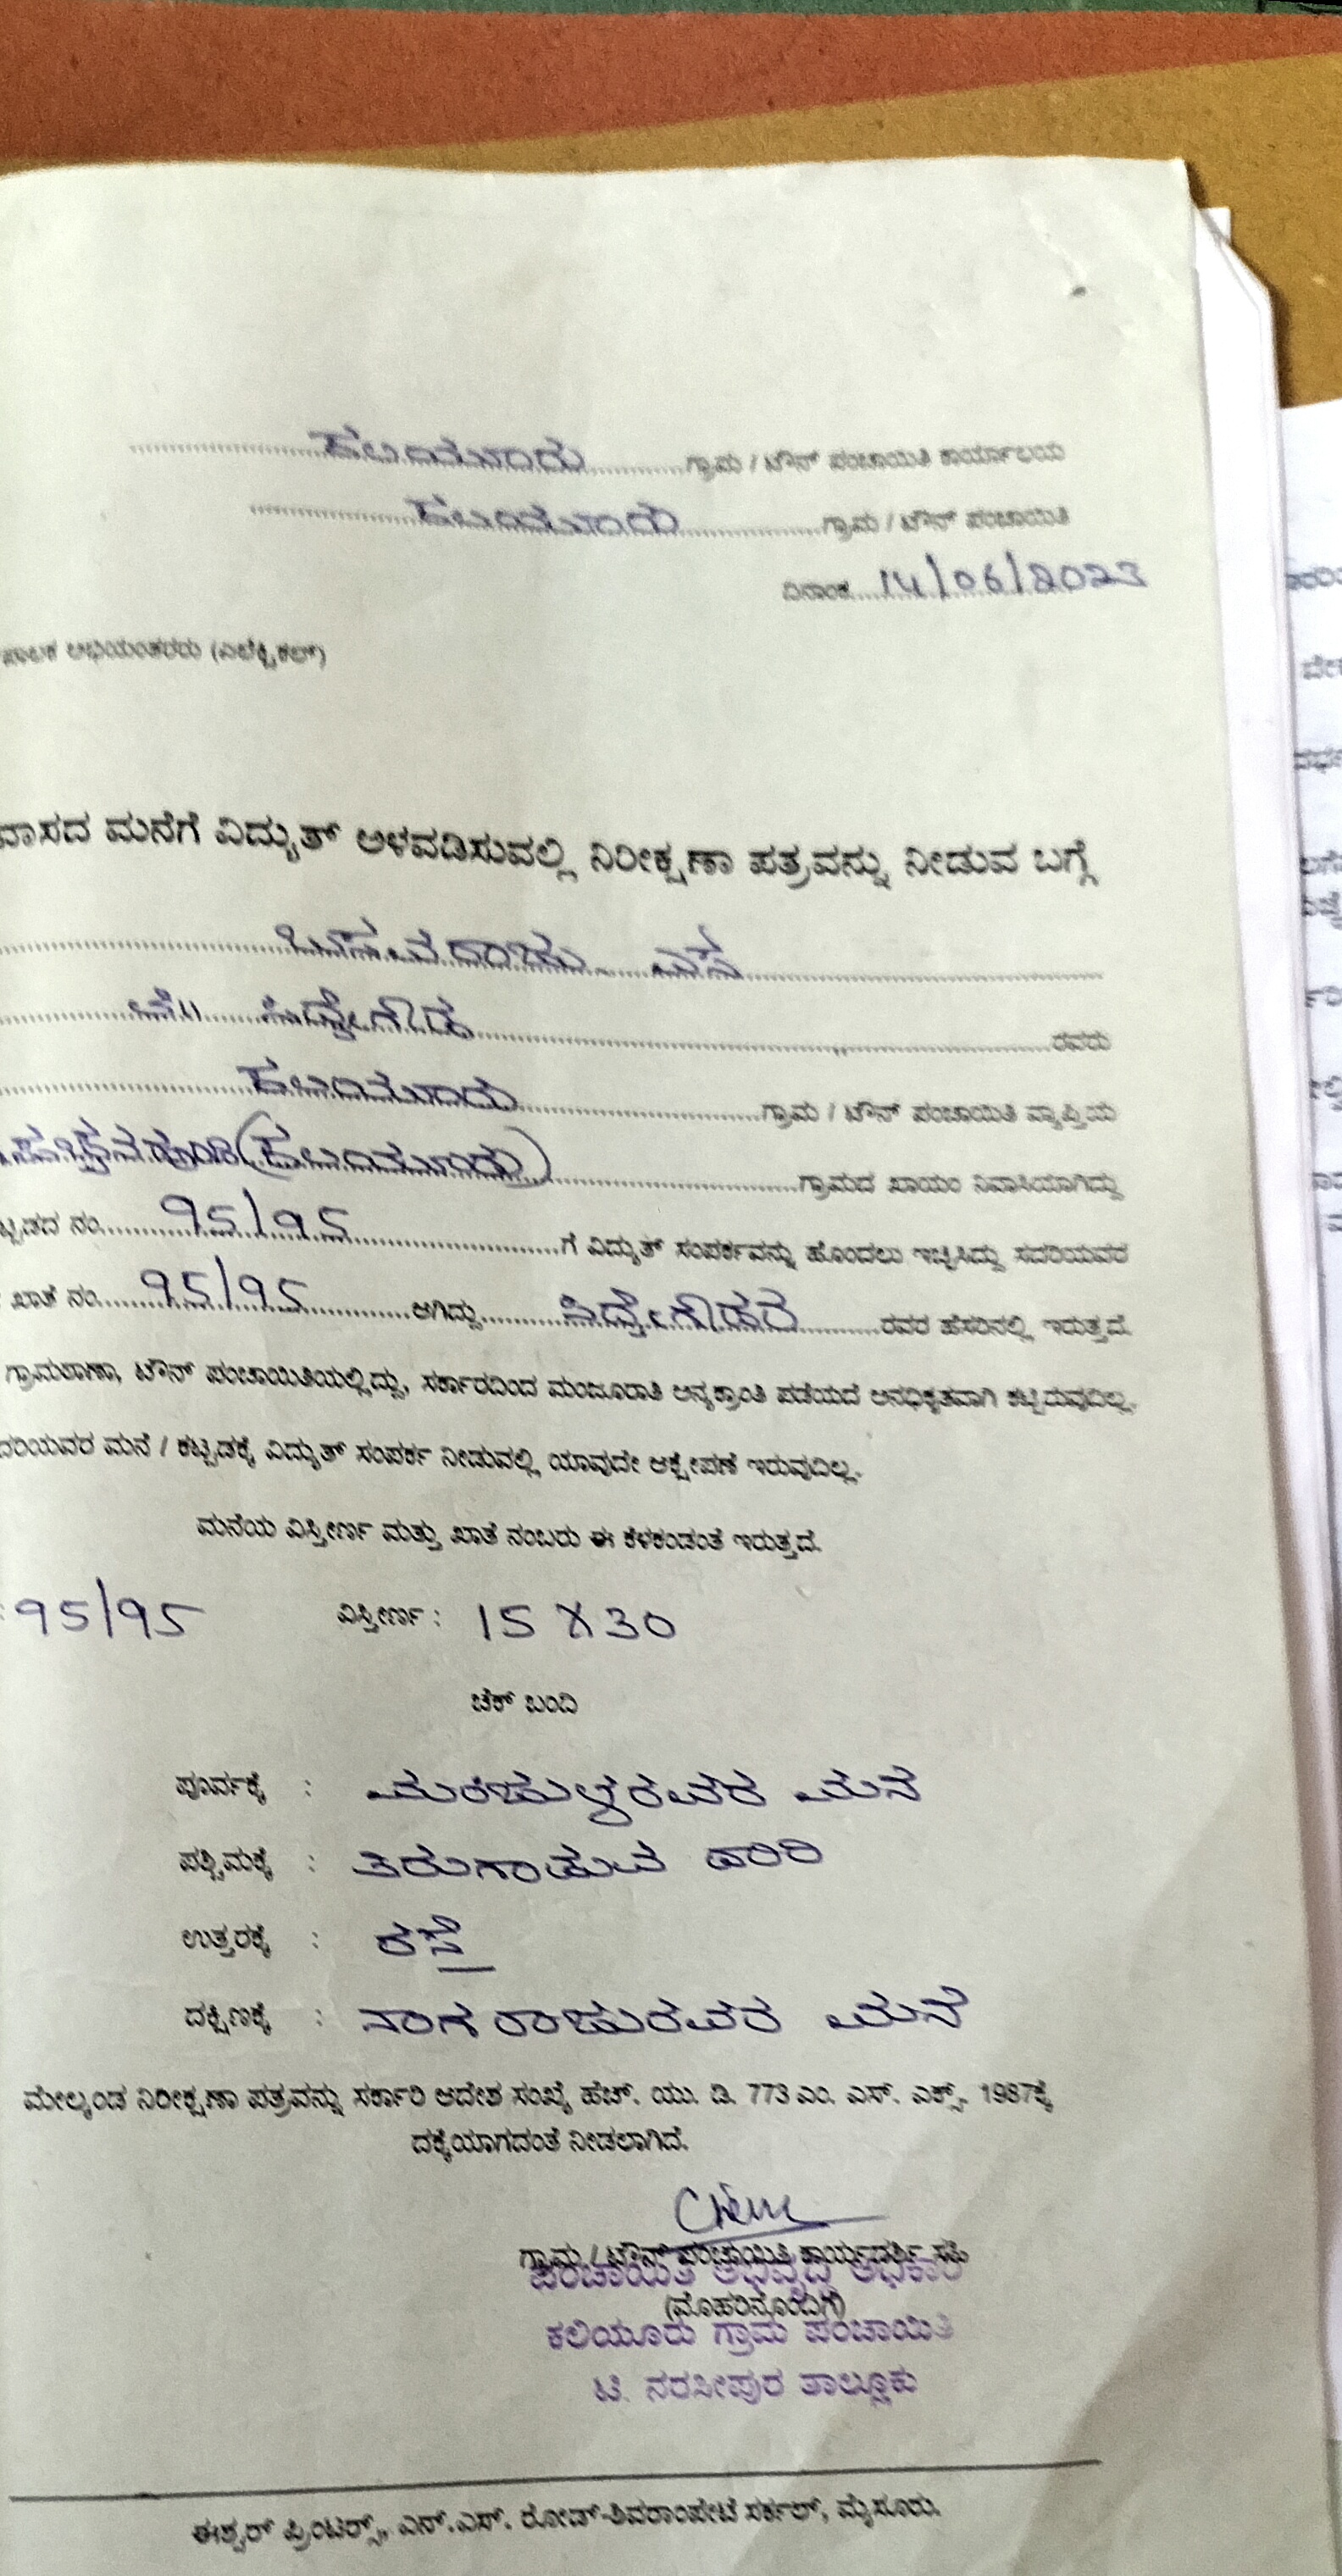 ಕಲಿಯೂರು ಗ್ರಾಮ / ಟೌನ್ ಪಂಚಾಯಿತಿ ಕಾರ್ಯಾಲಯ
ಕಲಿಯೂರು ಗ್ರಾಮ / ಟೌನ್ ಪಂಚಾಯಿತಿ
ದಿನಾಂಕ 14/06/2023
ಪಾಲಕ ಅಭಿಯಂತರರು (ಎಲೆಕ್ಟ್ರಿಕಲ್)
ವಾಸದ ಮನೆಗೆ ವಿದ್ಯುತ್ ಅಳವಡಿಸುವಲ್ಲಿ ನಿರೀಕ್ಷಣಾ ಪತ್ರವನ್ನು ನೀಡುವ ಬಗ್ಗೆ
ಬಸವರಾಜು ಎಸ್
ಬಿನ್ ಸಿದ್ದೇಗೌಡ ರವರು
ಕಲಿಯೂರು ಗ್ರಾಮ / ಟೌನ್ ಪಂಚಾಯಿತಿ ವ್ಯಾಪ್ತಿಯ
(ಕಲಿಯೂರು) ಗ್ರಾಮದ ಖಾಯಂ ನಿವಾಸಿಯಾಗಿದ್ದು
ಟ್ಟಡದ ನಂ 95/95 ಗೆ ವಿದ್ಯುತ್ ಸಂಪರ್ಕವನ್ನು ಹೊಂದಲು ಇಚ್ಛಿಸಿದ್ದು ಸದರಿಯವರ
ಖಾತೆ ನಂ 95/95 ಆಗಿದ್ದು ಸಿದ್ದೇಗೌಡರ ರವರ ಹೆಸರಿನಲ್ಲಿ ಇರುತ್ತದೆ.
ಗ್ರಾಮಠಾಣಾ, ಟೌನ್ ಪಂಚಾಯಿತಿಯಲ್ಲಿದ್ದು, ಸರ್ಕಾರದಿಂದ ಮಂಜೂರಾತಿ ಅನ್ಯಕ್ರಾಂತಿ ಪಡೆಯದೆ ಅನಧಿಕೃತವಾಗಿ ಕಟ್ಟಿರುವುದಿಲ್ಲ.
ದರಿಯವರ ಮನೆ / ಕಟ್ಟಡಕ್ಕೆ ವಿದ್ಯುತ್ ಸಂಪರ್ಕ ನೀಡುವಲ್ಲಿ ಯಾವುದೇ ಆಕ್ಷೇಪಣೆ ಇರುವುದಿಲ್ಲ.
ಮನೆಯ ವಿಸ್ತೀರ್ಣ ಮತ್ತು ಖಾತೆ ನಂಬರು ಈ ಕೆಳಕಂಡಂತೆ ಇರುತ್ತದೆ.
: 95/95 ವಿಸ್ತೀರ್ಣ : 15 X 30
ಚೆಕ್ ಬಂದಿ
ಪೂರ್ವಕ್ಕೆ : ಮನೆ
ಪಶ್ಚಿಮಕ್ಕೆ : ತಿರುಗಾಡುವ ದಾರಿ
ಉತ್ತರಕ್ಕೆ : ರಸ್ತೆ
ದಕ್ಷಿಣಕ್ಕೆ : ನಾಗರಾಜುರವರ ಮನೆ
ಮೇಲ್ಕಂಡ ನಿರೀಕ್ಷಣಾ ಪತ್ರವನ್ನು ಸರ್ಕಾರಿ ಆದೇಶ ಸಂಖ್ಯೆ ಹೆಚ್. ಯು. ಡಿ. 773 ಎಂ. ಎಸ್. ಎಕ್ಸ್. 1987ಕ್ಕೆ
ದಕ್ಕೆಯಾಗದಂತೆ ನೀಡಲಾಗಿದೆ.
ಗ್ರಾಮ / ಟೌನ್ ಪಂಚಾಯಿತಿ ಕಾರ್ಯದರ್ಶಿ ಸಹಿ
ಪಂಚಾಯಿತಿ ಅಭಿವೃದ್ಧಿ ಅಧಿಕಾರಿ
(ಮೊಹರಿನೊಂದಿಗೆ)
ಕಲಿಯೂರು ಗ್ರಾಮ ಪಂಚಾಯಿತಿ
ಟಿ. ನರಸೀಪುರ ತಾಲ್ಲೂಕು
ಈಶ್ವರ್ ಪ್ರಿಂಟರ್ಸ್, ಎನ್.ಎಸ್. ರೋಡ್-ಶಿವರಾಂಪೇಟೆ ಸರ್ಕಲ್, ಮೈಸೂರು.